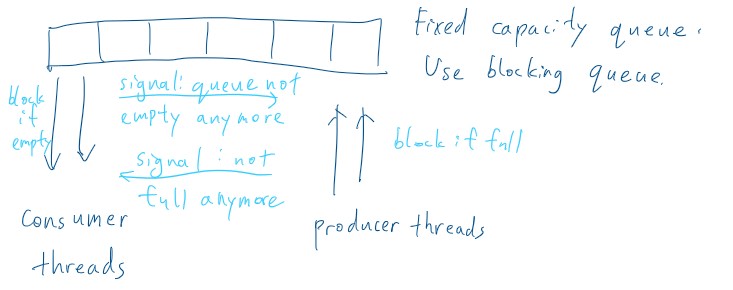 Fixed capacity queue.
Use blocking queue.
block
if
empty
signal: queue not
empty anymore
signal: not
full anymore
block if full
Consumer
threads
producer threads